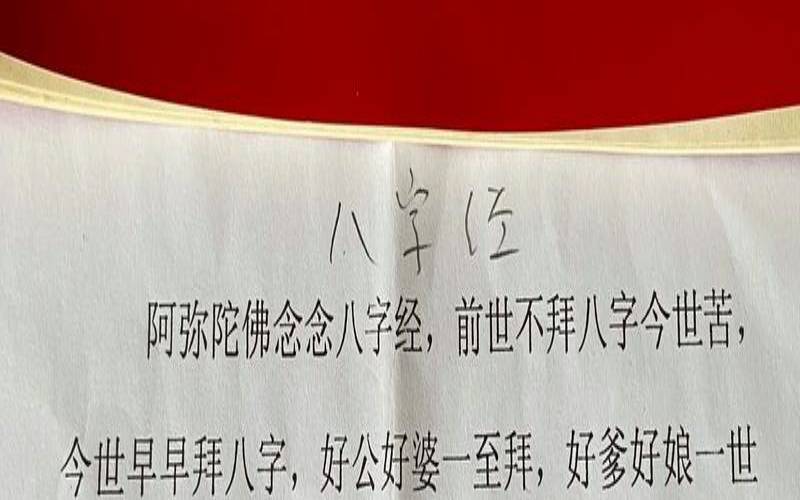 八字经
阿弥陀佛念念八字经，前世不拜八字今世苦，
今世早早拜八字，好公好婆一至拜，好爹好娘一世